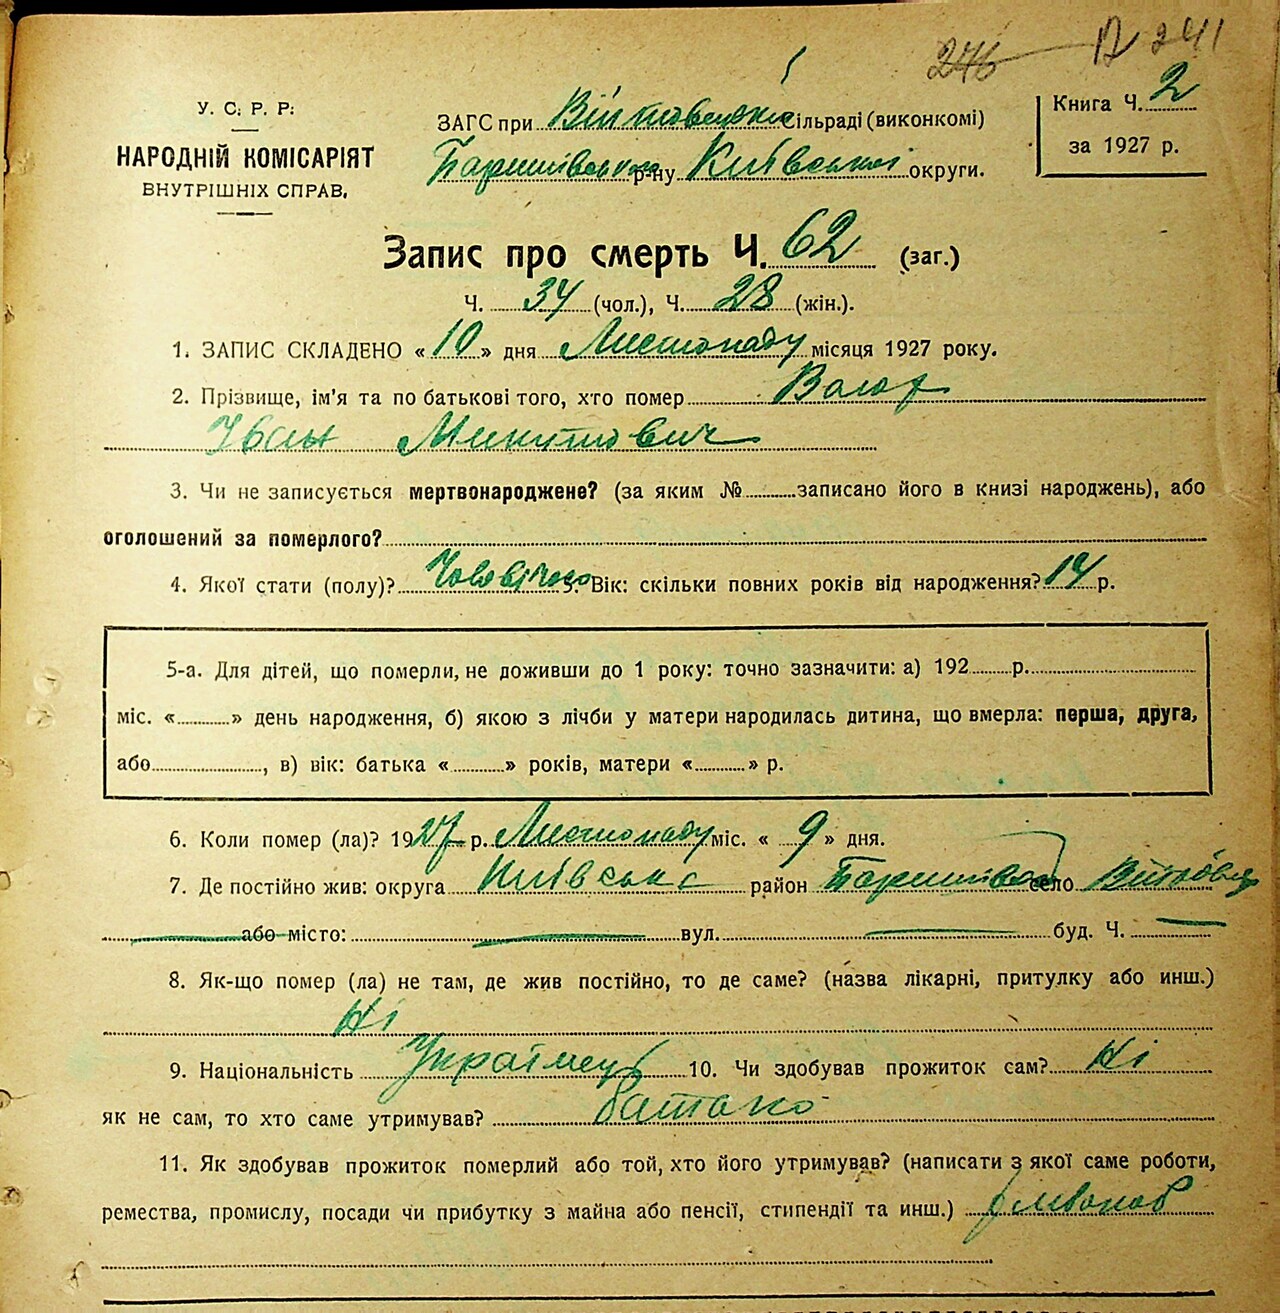 246 241
У. С. Р. Р.
НАРОДНІЙ КОМІСАРІЯТ
ВНУТРІШНІХ СПРАВ.
ЗАГС при Війтовецькій Сільраді (виконкомі)
Баришівського р-ну Київської округи.
Книга Ч. 2
за 1927 р.
Запис про смерть Ч. 62 (заг.)
Ч. 34 (чол.), Ч. 28 (жін.).
1. ЗАПИС СКЛАДЕНО « 10 » дня Листопаду місяця 1927 року.
2. Прізвище, ім'я та по батькові того, хто помер
Іван Микитович
3. Чи не записується мертвонароджене? (за яким № записано його в книзі народжень), або
оголошений за померлого?
4. Якої стати (полу)? Чоловічого 5. Вік: скільки повних років від народження? 14 р.
5-а. Для дітей, що померли, не доживши до 1 року: точно зазначити: а) 192 р.
міс. « » день народження, б) якою з лічби у матери народилась дитина, що вмерла: перша, друга,
або , в) вік: батька « » років, матери « » р.
6. Коли помер (ла)? 1927 р. Листопаду міс. « 9 » дня.
7. Де постійно жив: округа Київська район Баришівськ село Війтовці
або місто: вул. буд. Ч.
8. Як-що помер (ла) не там, де жив постійно, то де саме? (назва лікарні, притулку або инш.)
Ні
9. Національність Українець 10. Чи здобував прожиток сам? Ні
як не сам, то хто саме утримував? Батько
11. Як здобував прожиток померлий або той, хто його утримував? (написати з якої саме роботи,
ремества, промислу, посади чи прибутку з майна або пенсії, стипендії та инш.)